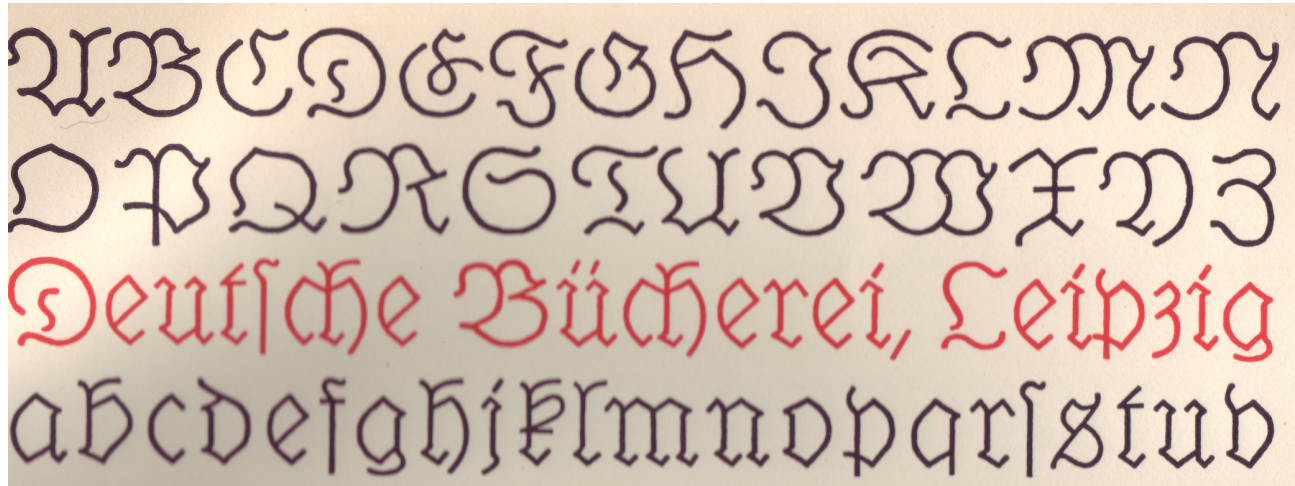 ABCDEFGHIKLMN
OPQRSTUVWXYZ
Deutſche Bücherei, Leipzig
abcdefghjklmnopqrſstuv